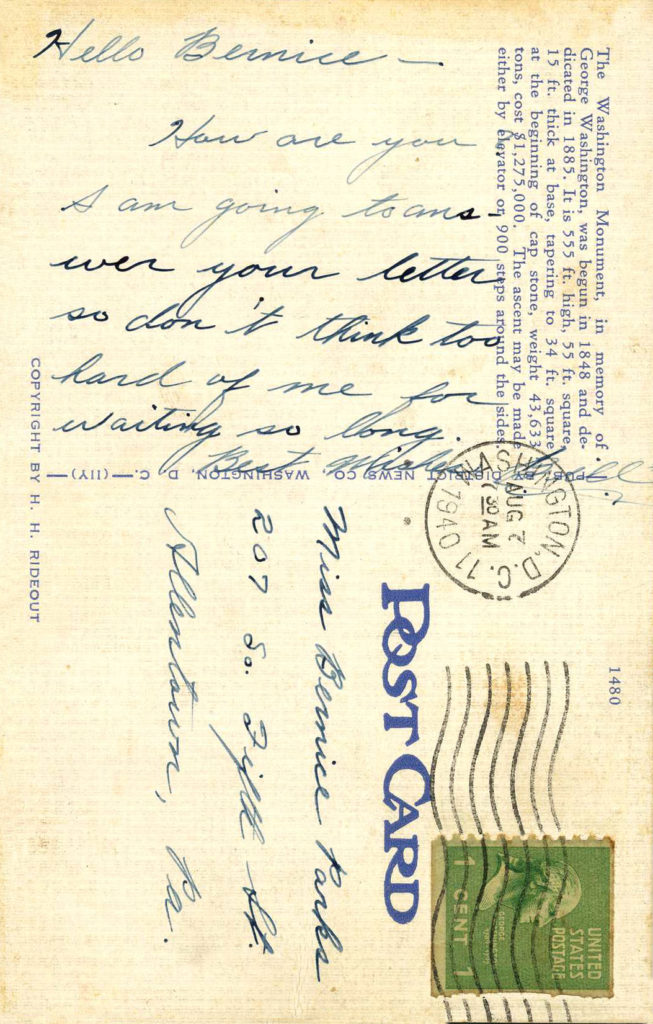 Hello Bernice —
How are you
I am going to ans-
wer your letter
so don't think too
hard of me for
waiting so long.
Best Wishes
The Washington Monument, in memory of
George Washington, was begun in 1848 and de-
dicated in 1885. It is 555 ft. high, 55 ft. square,
15 ft. thick at base, tapering to 34 ft. square
at the beginning of cap stone, weight 43,633
tons, cost $1,275,000. The ascent may be made
either by elevator or 900 steps around the sides.
PUB. BY DISTRICT NEWS CO., WASHINGTON, D. C.—(11Y)—
COPYRIGHT BY H. H. RIDEOUT
1480
POST CARD
WASHINGTON, D.C. 11
AUG 7
7 30 AM
1940
UNITED
STATES
POSTAGE
1 CENT 1
Miss Bernice Parks
207 So. Fifth St.
Allentown, Pa.